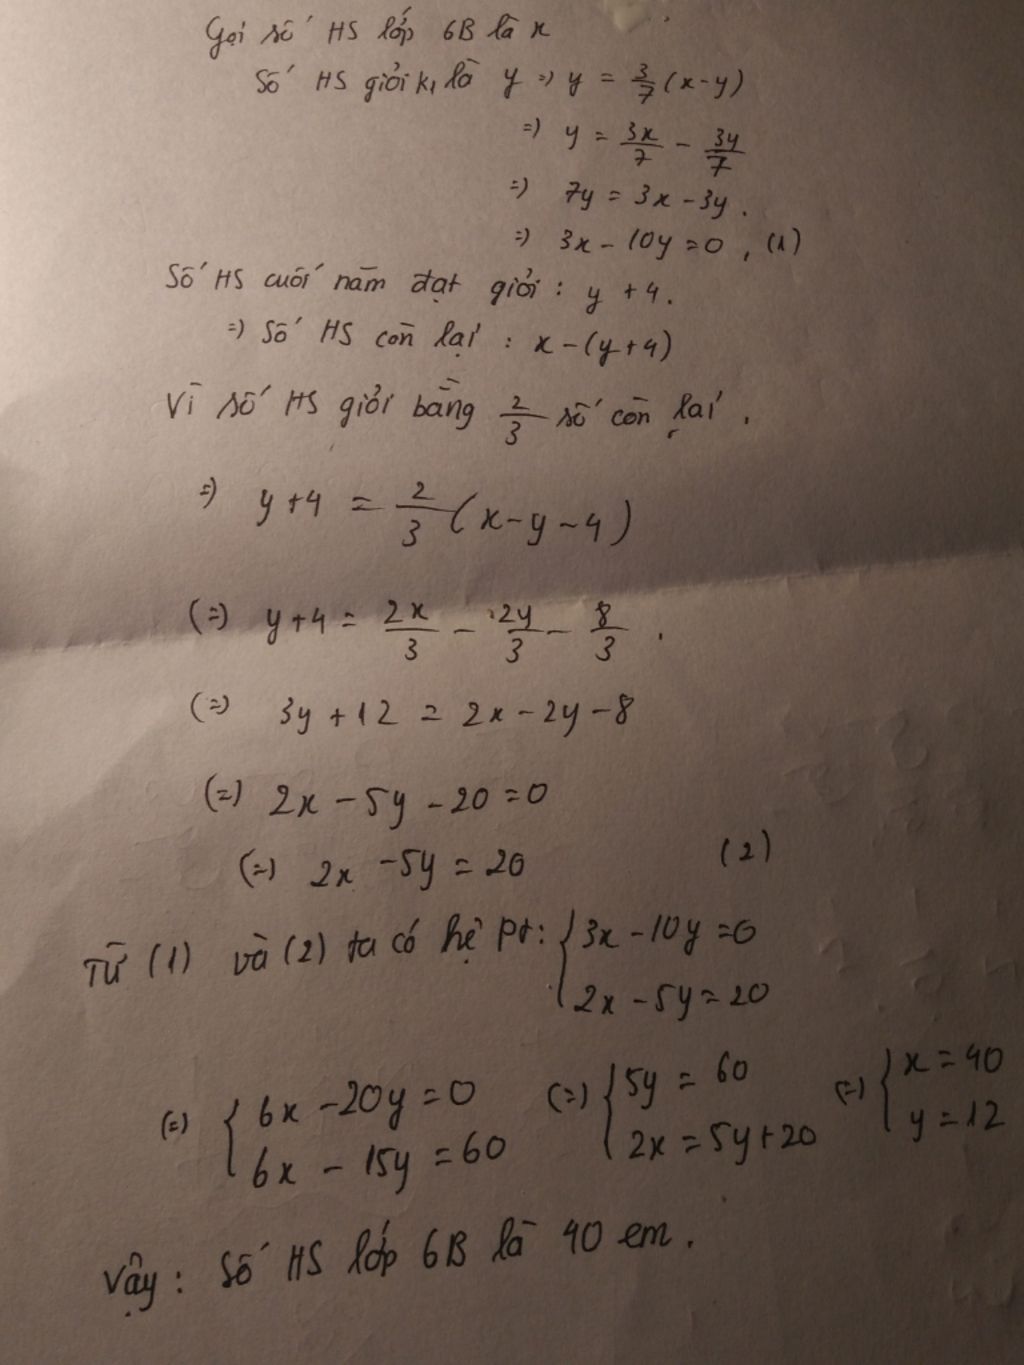 Gọi số HS lớp 6B là x
Số HS giỏi k1 là y => y = 3/7 (x-y)
=> y = 3x/7 - 3y/7
=> 7y = 3x - 3y.
=> 3x - 10y = 0, (1)
Số HS cuối năm đạt giỏi: y + 4.
=> Số HS còn lại: x - (y+4)
Vì số HS giỏi bằng 2/3 số còn lại.
=> y+4 = 2/3 (x-y-4)
(=) y+4 = 2x/3 - 2y/3 - 8/3.
(=) 3y + 12 = 2x - 2y - 8
(=) 2x - 5y - 20 = 0
(=) 2x - 5y = 20 (2)
Từ (1) và (2) ta có hệ Pt: { 3x - 10y = 0
2x - 5y = 20
(=) { 6x - 20y = 0 (=) { 5y = 60 (=) { x = 40
6x - 15y = 60 2x = 5y + 20 y = 12
Vậy: Số HS lớp 6B là 40 em.